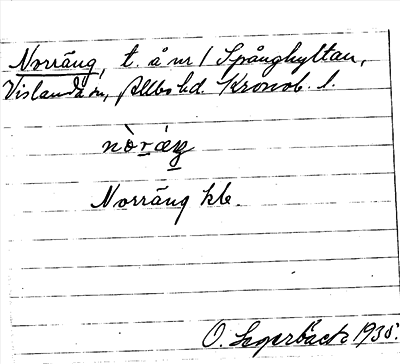 Norräng, t. å nr 1 Spånghyltan,
Vislanda sn, Allbo hd. Kronob. l.
Norräng kbl.
O. Lagerbäck 1935.